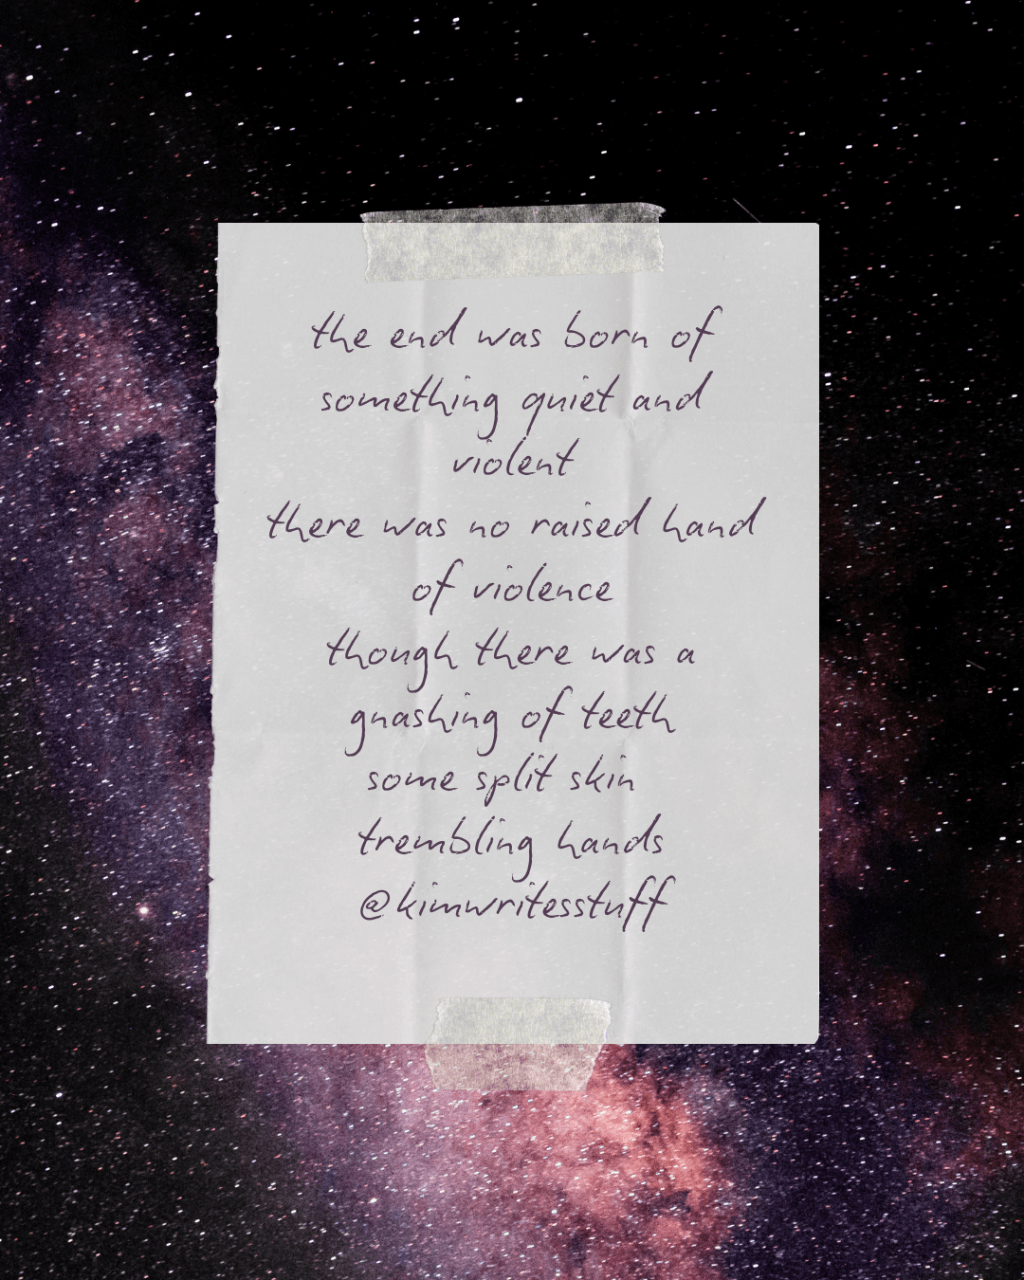 the end was born of
something quiet and
violent
there was no raised hand
of violence
though there was a
gnashing of teeth
some split skin
trembling hands
@kimwritesstuff